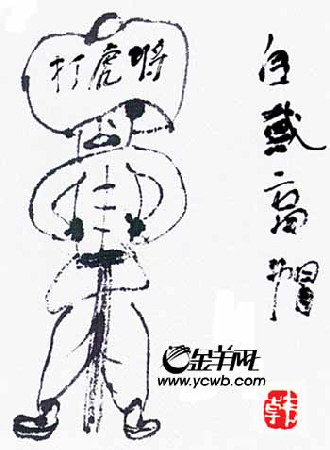 打虎将
自戴高帽
金羊网
www.ycwb.com